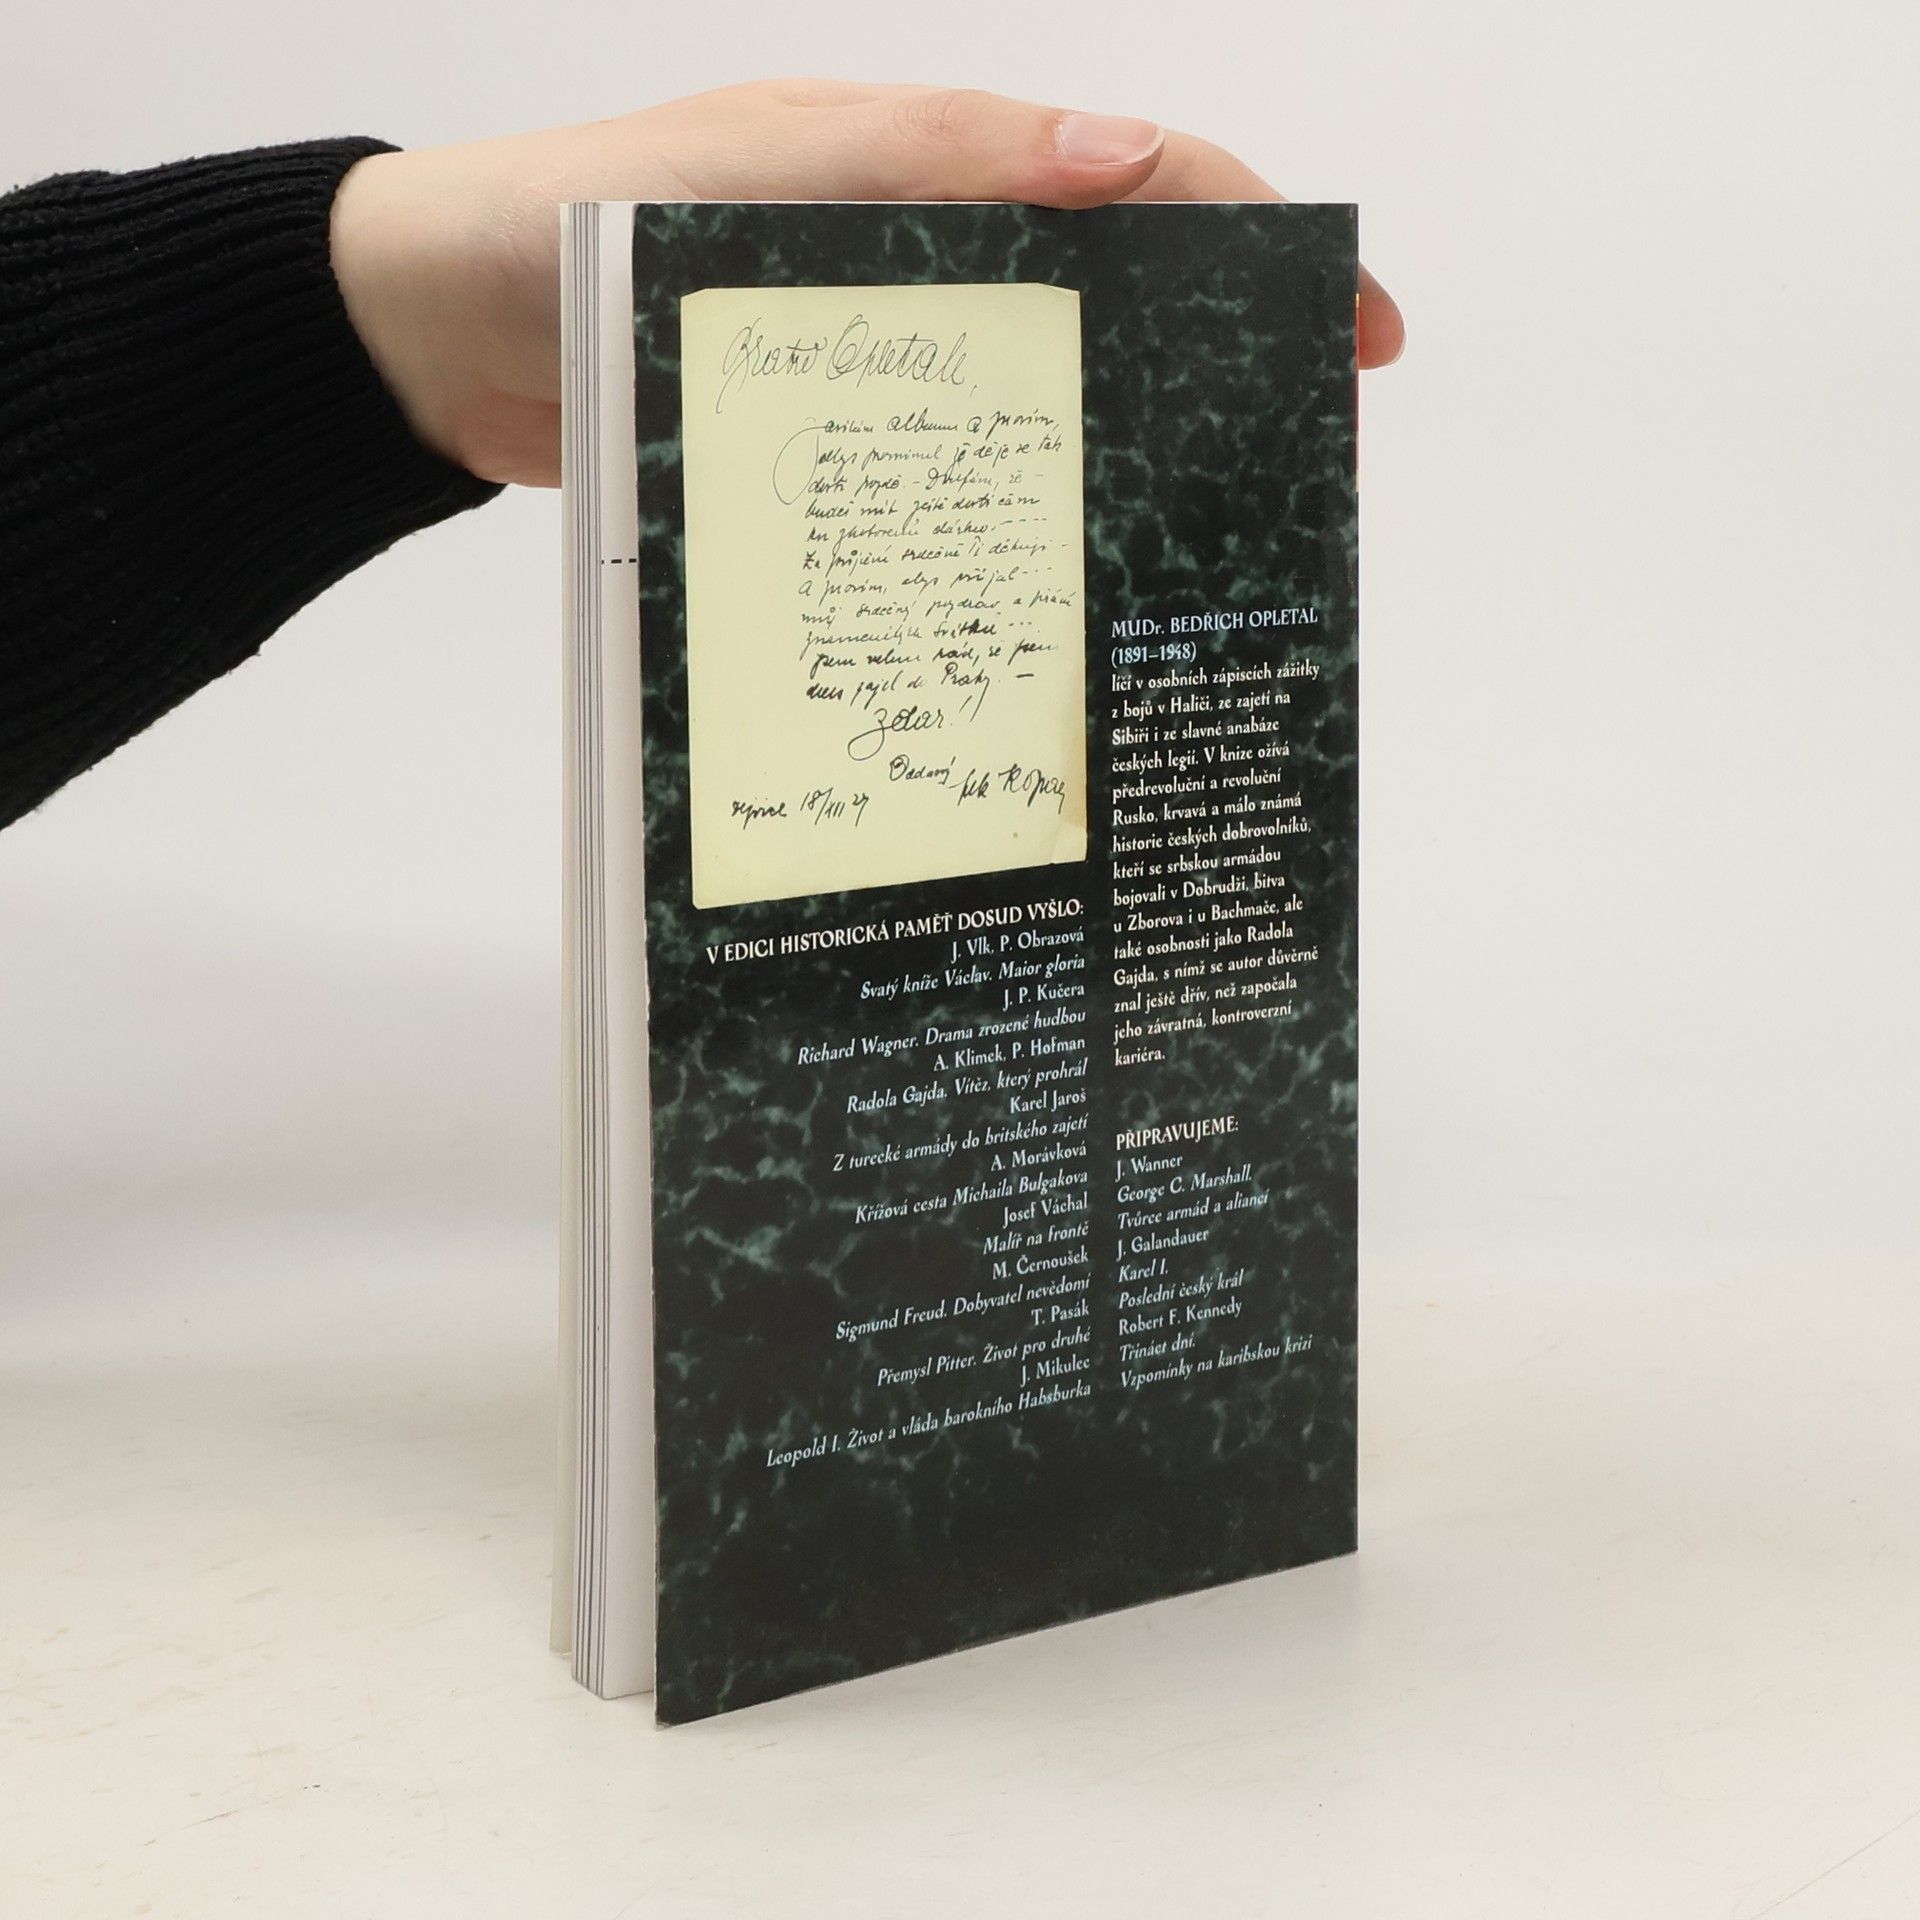 Bratře Opletale,
album a prosím,
abys prominul že děje se tak
dosti pozdě. – Doufám, že –
budeš mít ještě dosti času
ku zhotovení
Za půjčení srdečně Ti děkuji –
a prosím, abys přijal
můj srdečný pozdrav a přání
Svátků
jsem velmi rád, že jsem
do Prahy. –
Zdar!
Oddaný
18/XII 27
V EDICI HISTORICKÁ PAMĚŤ DOSUD VYŠLO:
J. Vlk, P. Obrazová
Svatý kníže Václav. Maior gloria
J. P. Kučera
Richard Wagner. Drama zrozené hudbou
A. Klimek, P. Hofman
Radola Gajda. Vítěz, který prohrál
Karel Jaroš
Z turecké armády do britského zajetí
A. Morávková
Křížová cesta Michaila Bulgakova
Josef Váchal
Malíř na frontě
M. Černoušek
Sigmund Freud. Dobyvatel nevědomí
T. Pasák
Přemysl Pitter. Život pro druhé
J. Mikulec
Leopold I. Život a vláda barokního Habsburka
MUDr. BEDŘICH OPLETAL
(1891–1948)
líčí v osobních zápiscích zážitky
z bojů v Haliči, ze zajetí na
Sibiři i ze slavné anabáze
českých legií. V knize ožívá
předrevoluční a revoluční
Rusko, krvavá a málo známá
historie českých dobrovolníků,
kteří se srbskou armádou
bojovali v Dobrudži, bitva
u Zborova i u Bachmače, ale
také osobnosti jako Radola
Gajda, s nímž se autor důvěrně
znal ještě dřív, než započala
jeho závratná, kontroverzní
kariéra.
PŘIPRAVUJEME:
J. Wanner
George C. Marshall.
Tvůrce armád a aliancí
J. Galandauer
Karel I.
Poslední český král
Robert F. Kennedy
Třináct dní.
Vzpomínky na karibskou krizi